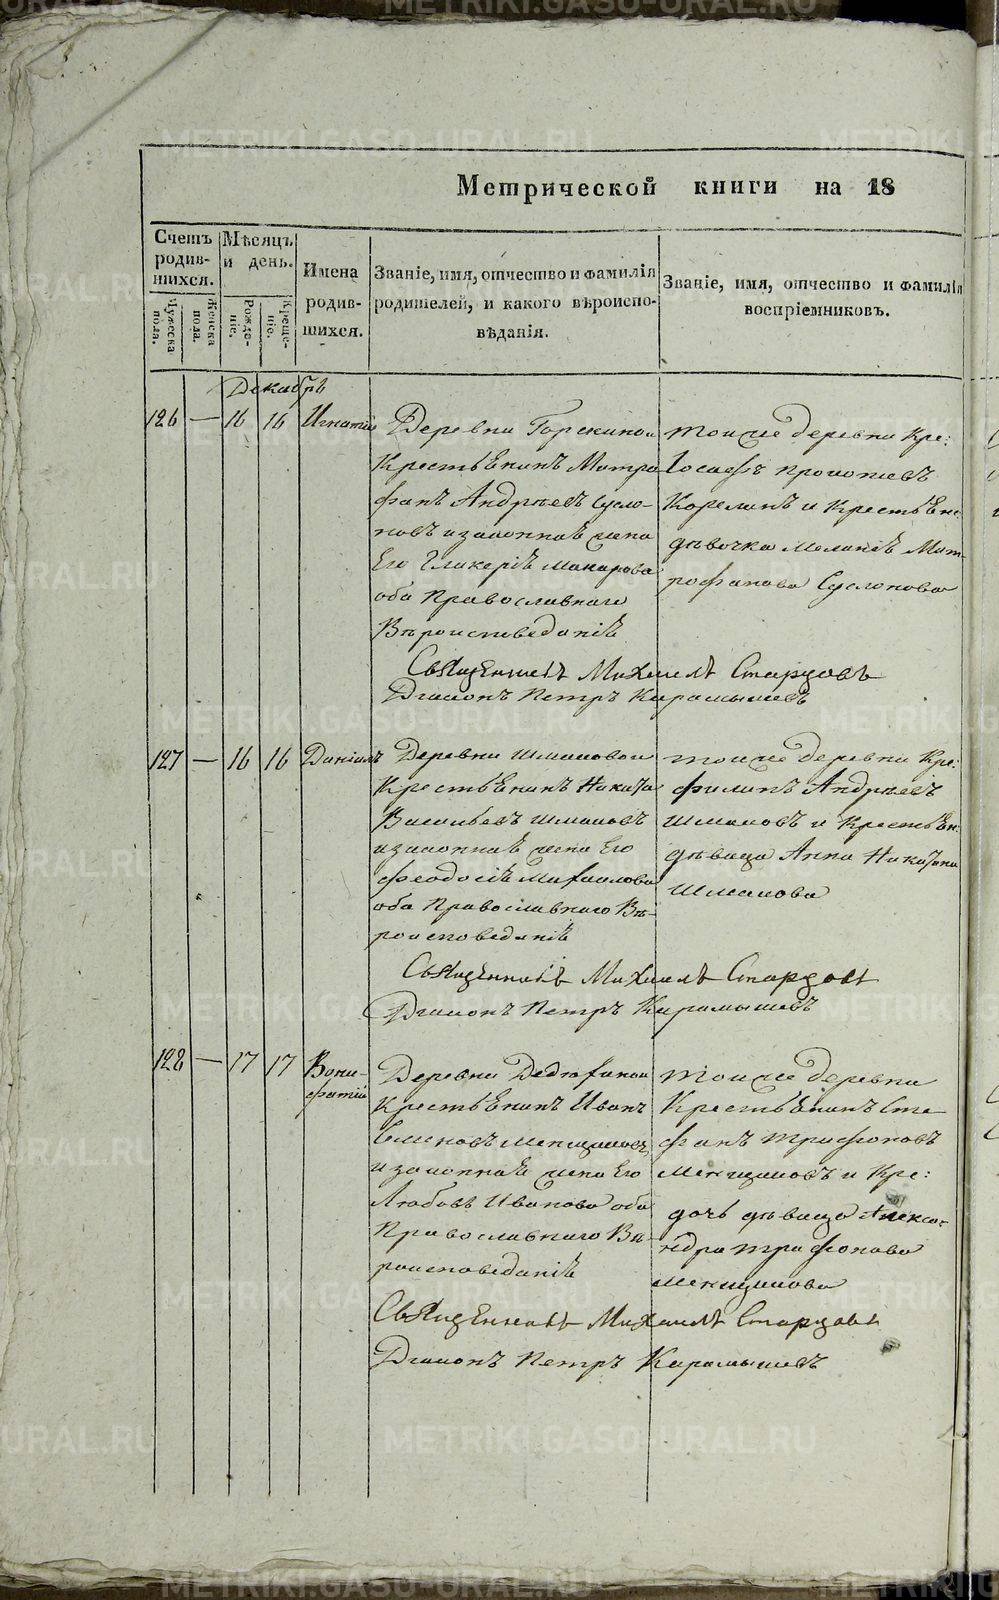 METRIKI.GASO-URAL.RU
Метрической книги на 18
Счетъ родив- шихся.
Мѣсяцъ и день.
Имена родив- шихся.
Званіе, имя, отчество и фамилія родителей, и какого вѣроиспо- вѣданія.
Званіе, имя, отчество и фамилія воспріемниковъ.
Мужеска пола.
Женска пола.
Рожде- ніе.
Креще- ніе.
Декабрь
126 — 16 16 Игнатій
Деревни
Крестьянинъ Митро
фанъ Андрѣевъ Сусло-
новъ изаконная жена
Его Гликерія Макарова
оба Православнаго
Вѣроисповеданія
тоиже деревни Кре:
Іосафъ
Карелинъ и Крестьянс
дѣвочка Меланія Мит
рофанова Суслонова
Священникъ Михаилъ Старцовъ
Діаконъ Петръ Карамышевъ
127 — 16 16 Даніилъ
Деревни Шмаковои
Крестьянинъ Никита
Васильевъ Шмаковъ
изаконная жена Его
Феодосія Михаилова
оба Православнаго Вѣ-
роисповеданія
тоиже деревни Кре:
Филипъ Андрѣевъ
Шмаковъ и Крестьян:
дѣвица Анна Никитина
Шмакова
Священникъ Михаилъ Старцовъ
Діаконъ Петръ Карамышевъ
128 — 17 17 Вони-
фатій
Деревни Дедюхинои
Крестьянинъ Иванъ
Семеновъ Менщиковъ
изаконная жена Его
Любовь Иванова оба
Православнаго Вѣ-
роисповеданія
тоиже деревни
Крестьянинъ Сте
фанъ Трифоновъ
Менщиковъ и Кре:
дочь дѣвица Алекса-
ндра Трифонова
Менщикова
Священникъ Михаилъ Старцовъ
Діаконъ Петръ Карамышевъ